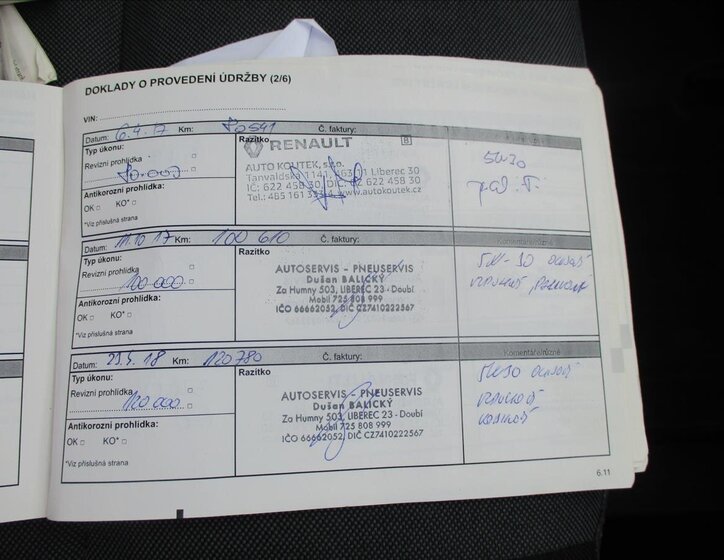 DOKLADY O PROVEDENÍ ÚDRŽBY (2/6)
VIN:
Datum: 6.4.17 Km: 80541 Č. faktury:
Typ úkonu:
Revizní prohlídka
80.000
Antikorozní prohlídka:
OK KO*
*Viz příslušná strana
Razítko
RENAULT
AUTO KOUTEK, s.r.o.
Tanvaldská 1141, 463 11 Liberec 30
IČ: 622 458 30, DIČ: CZ 622 458 30
Tel.: 485 161 www.autokoutek.cz
5W30
Datum: 11.10 17 Km: 100 610 Č. faktury:
Komentáře/různé
Typ úkonu:
Revizní prohlídka
100.000
Antikorozní prohlídka:
OK KO*
*Viz příslušná strana
Razítko
AUTOSERVIS - PNEUSERVIS
Dušan BALICKÝ
Za Humny 503, LIBEREC 23 - Doubí
Mobil 725 808 999
IČO 66662052, DIČ CZ7410222567
Datum: 23.5.18 Km: 120780 Č. faktury:
Komentáře/různé
Typ úkonu:
Revizní prohlídka
120 000
Antikorozní prohlídka:
OK KO*
*Viz příslušná strana
Razítko
AUTOSERVIS - PNEUSERVIS
Dušan BALICKÝ
Za Humny 503, LIBEREC 23 - Doubí
Mobil 725 808 999
IČO 66662052, DIČ CZ7410222567
5W30
6.11